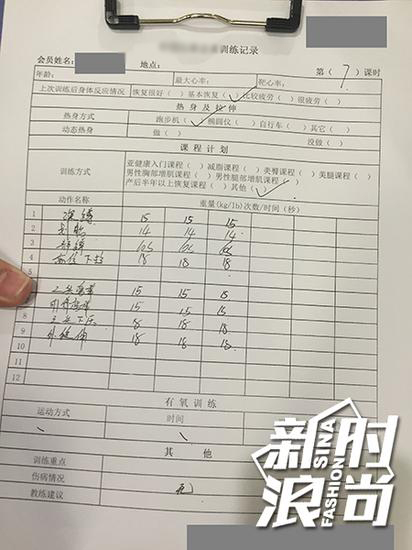 训练记录
会员姓名: 地点: 第( 7 )课时
年龄: 最大心率: 靶心率:
上次训练后身体反应情况 恢复很好( ) 基本恢复(✓) 比较疲劳( ) 很疲劳( )
热身及拉伸
热身方式 跑步机(✓) 椭圆仪( ) 自行车( ) 其它( )
动态热身 做( ) 没做( )
课程计划
训练方式
亚健康入门课程( ) 减脂课程( ) 美臀课程( ) 美腿课程( )
男性胸部增肌课程( ) 男性腿部增肌课程( )
产后半年以上恢复课程( ) 其他(✓)
动作名称 重量(kg/lb)次数/时间(秒)
1 15 15 15
2 14 14 14
3
4 下拉 18 18 18
5
15 15 15
15 15 15
8 下压 18 18 18
9 18 18 18
10
11
12
有氧训练
运动方式 时间
\ \
其他
训练重点
伤病情况 无
教练建议
新浪时尚
SINA
FASHION